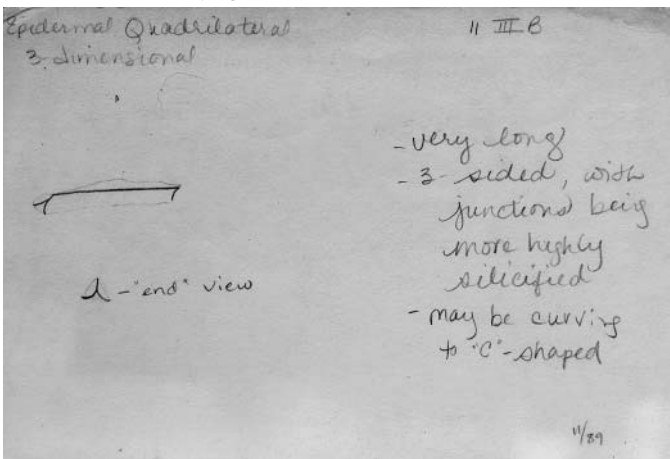 Epidermal Quadrilateral
3-dimensional
11 III B
- very long
- 3-sided, with
junctions being
more highly
silicified
- may be curving
to "C"-shaped
- "end" view
11/89